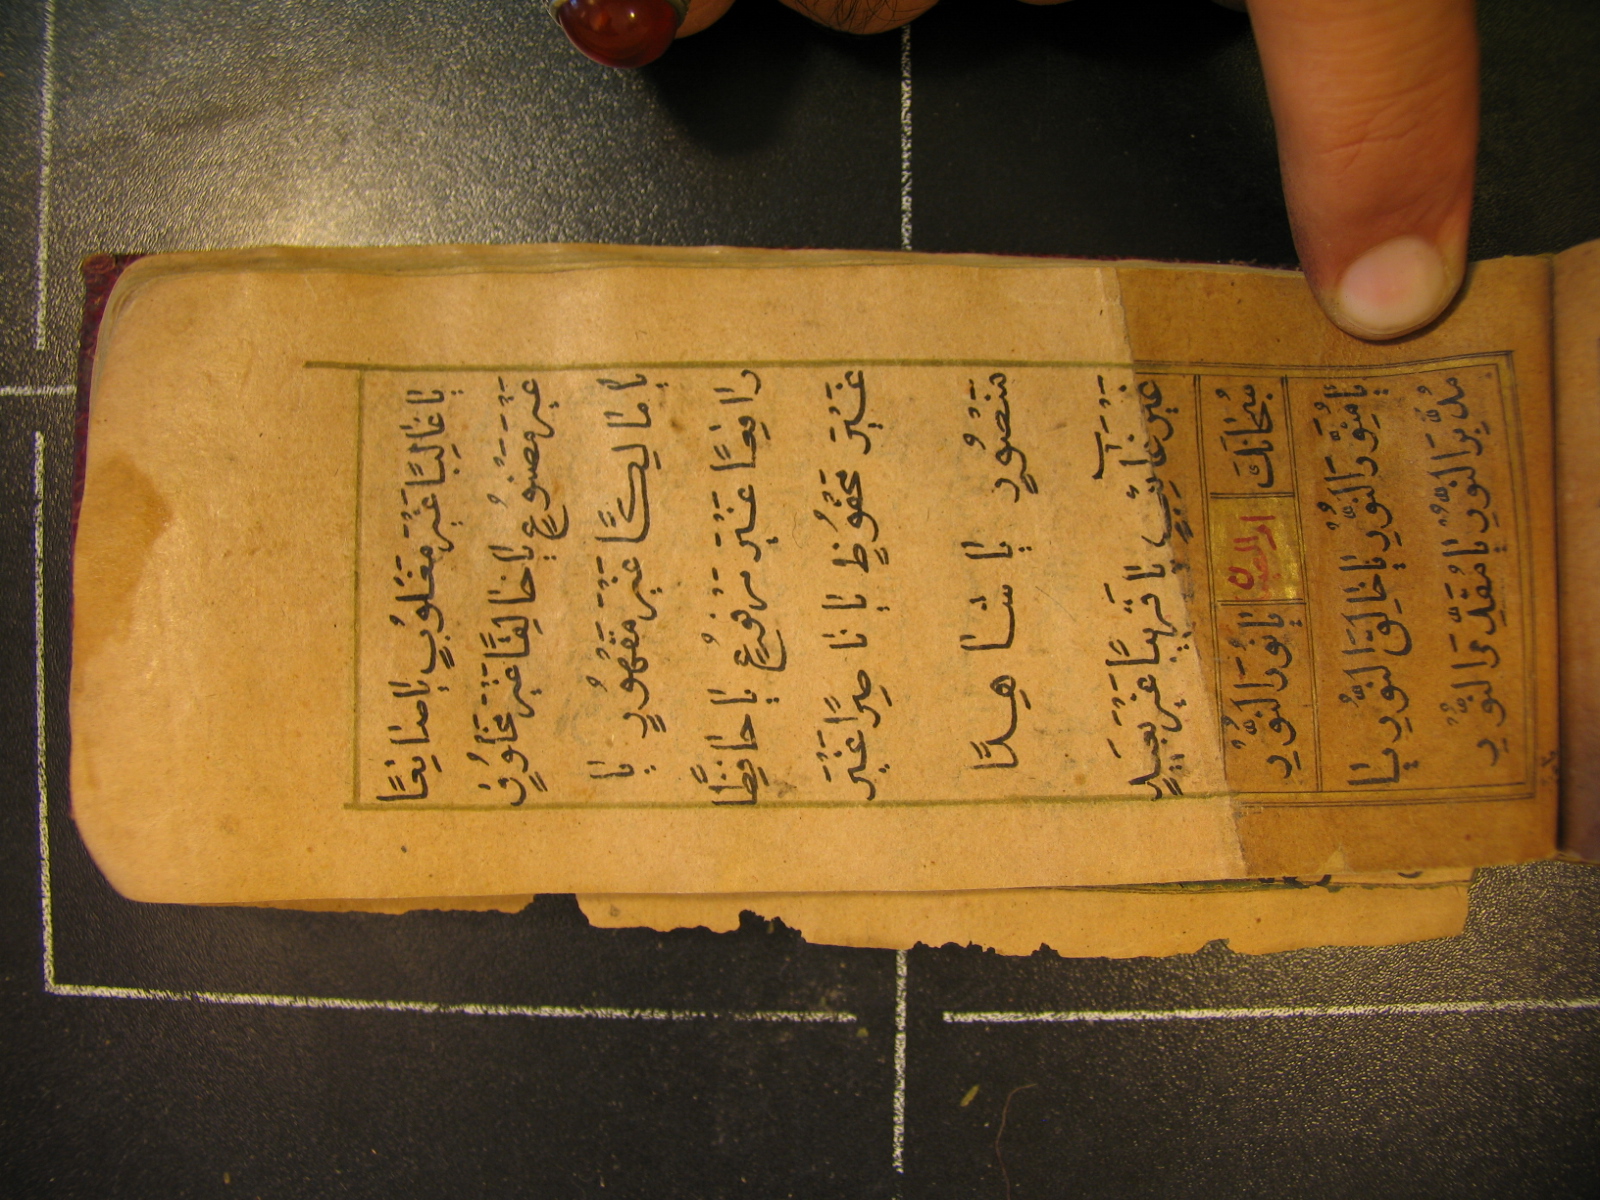 يَا غَالِبًا غَيْرَ مَغْلُوبٍ يَا صَانِعًا
غَيْرَ مَصْنُوعٍ يَا خَالِقًا غَيْرَ مَخْلُوقٍ
يَا مَالِكًا غَيْرَ مَقْهُورٍ يَا
رَافِعًا غَيْرَ مَرْفُوعٍ يَا حَافِظًا
غَيْرَ مَحْفُوظٍ يَا نَاصِرًا غَيْرَ
مَنْصُورٍ يَا شَاهِدًا
غَيْرَ غَائِبٍ يَا قَرِيبًا غَيْرَ بَعِيدٍ
سُبْحَانَكَ يَا نُورَ النُّورِ
يَا مُنَوِّرَ النُّورِ يَا خَالِقَ النُّورِ يَا
مُدَبِّرَ النُّورِ يَا مُقَدِّرَ النُّورِ